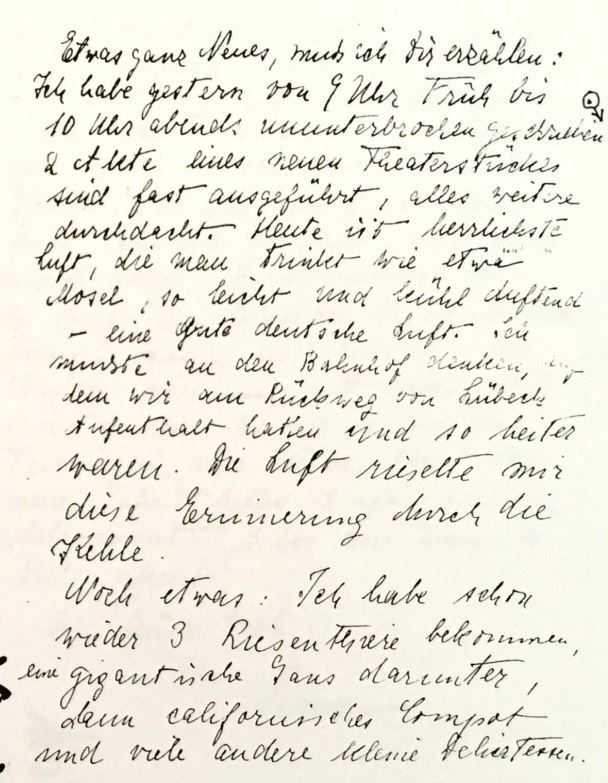 Etwas ganz Neues, muß ich Dir erzählen:
Ich habe gestern von 9 Uhr Früh bis
10 Uhr abends ununterbrochen geschrieben
2 Akte eines neuen Theaterstückes
sind fast ausgeführt, alles weitere
durchdacht. Heute ist herrlichste
Luft, die man trinkt wie etwa
Mosel, so leicht und kühl duftend
– eine gute deutsche Luft. Ich
mußte an den Bahnhof denken, auf
dem wir am Rückweg von Lübeck
Aufenthalt hatten und so heiter
waren. Die Luft rieselte mir
diese Erinnerung durch die
Kehle.
Noch etwas: Ich habe schon
wieder 3 Riesenthiere bekommen,
eine gigantische Gans darunter,
dann californisches Compot
und viele andere kleine Delicatessen.